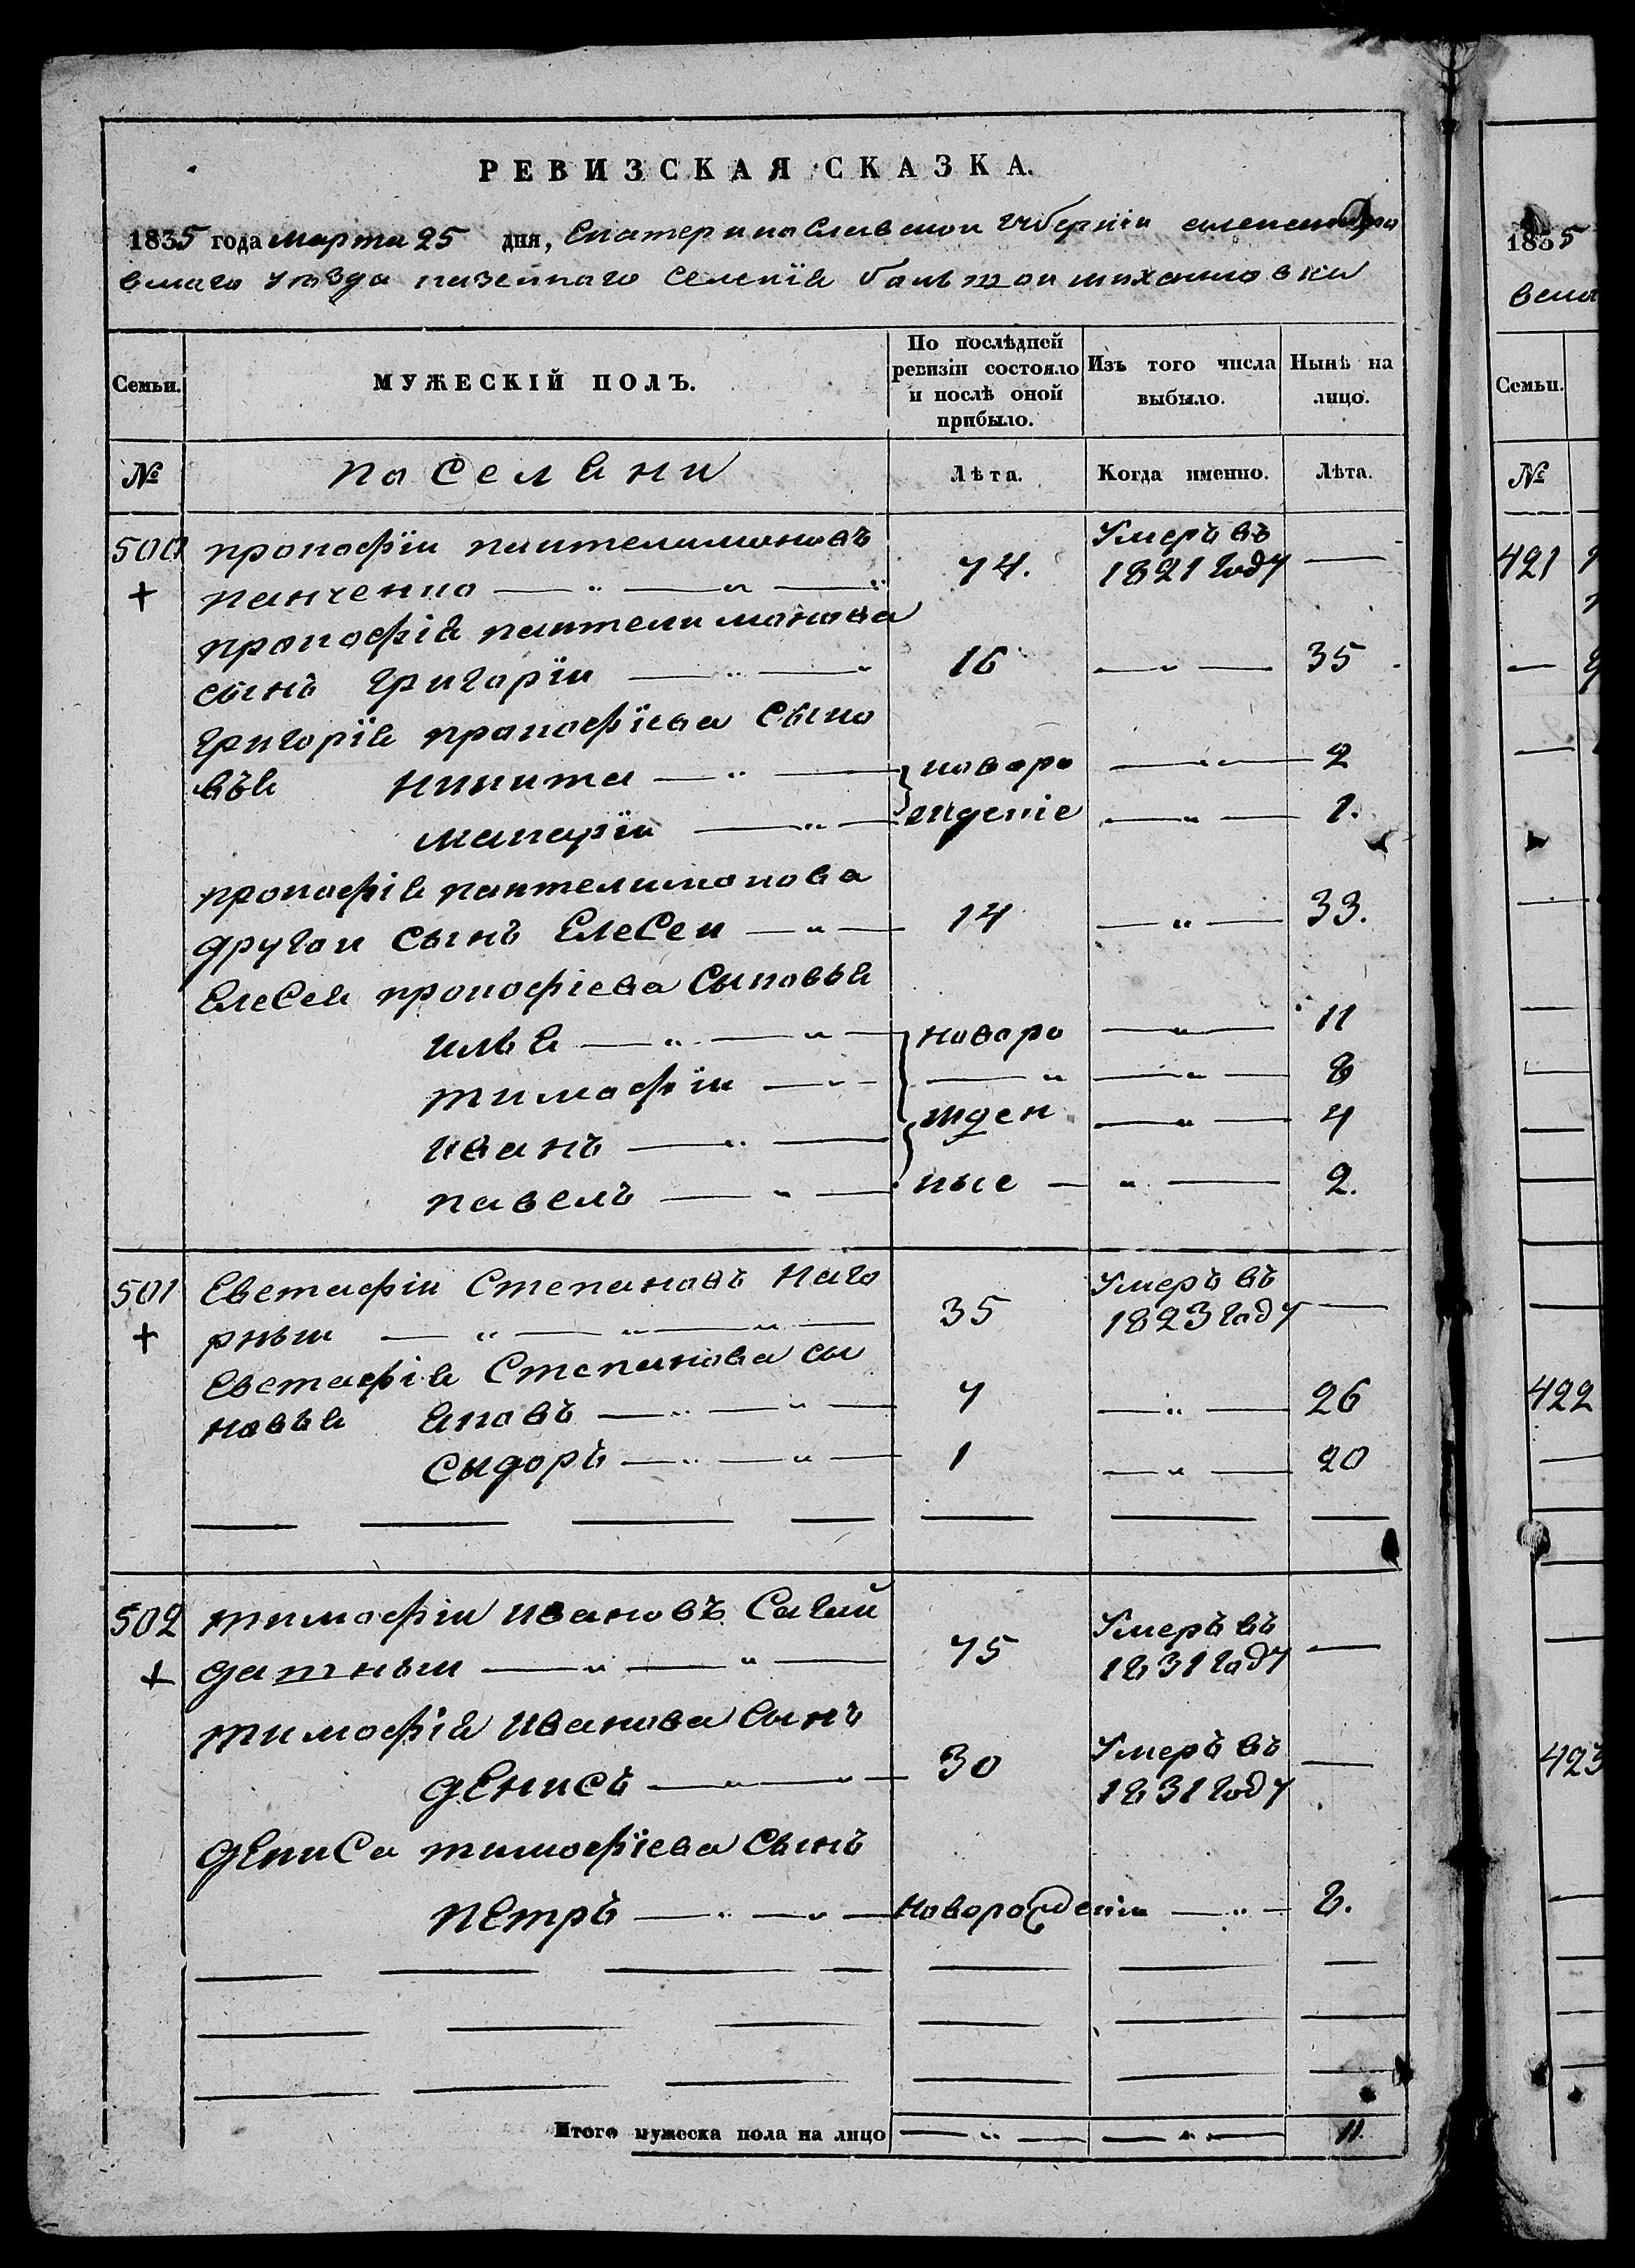 РЕВИЗСКАЯ СКАЗКА.
1835 года марта 25 дня, Екатеринославской губернiи александро
вскаго уѣзда казеннаго селенiя большой михайловки
Семьи.
МУЖЕСКIЙ ПОЛЪ.
По послѣдней ревизiи состояло и послѣ оной прибыло.
Изъ того числа выбыло.
Нынѣ на лицо.
№ поселяни Лѣта. Когда именно. Лѣта.
500 прокофiй пантелимоновъ Умеръ въ
+ панченко — " — " — " 74. 1821 году —
прокофiя пантелимонова
сынъ григорiй — " — " 16 — " — 35
григорiя прокофiева сыно
вья никита — " — новоро — " — 2
макарiй — " — ждение — " — 1.
прокофiя пантелимонова
другой сынъ Елесей — " — 14 — " — 33.
Елесея прокофiева сыновья
илья — " — " — новоро — " — 11
тимофiй — " — — " — " — 8
иванъ — " — жден — " — 4
павелъ — " — ные — " — 2.
501 Евстафiй Степановъ Наго Умеръ въ
+ рный — " — " — " — 35 1823 году —
Евстафiя Степанова сы
новья яковъ — " — " — 7 — " — 26
сыдоръ — " — " — 1 — " — 20
502 тимофiй ивановъ Сагай Умеръ въ
+ дашный — " — " — 75 1831 году —
тимофiя иванова сынъ Умеръ въ
денисъ — " — " — 30 1831 году —
дениса тимофiева сынъ
петръ — " — " — новорождений — " — 8.
Итого мужеска пола на лицо — " — — " — 11.
1835
Семьи.
№
421
422
423